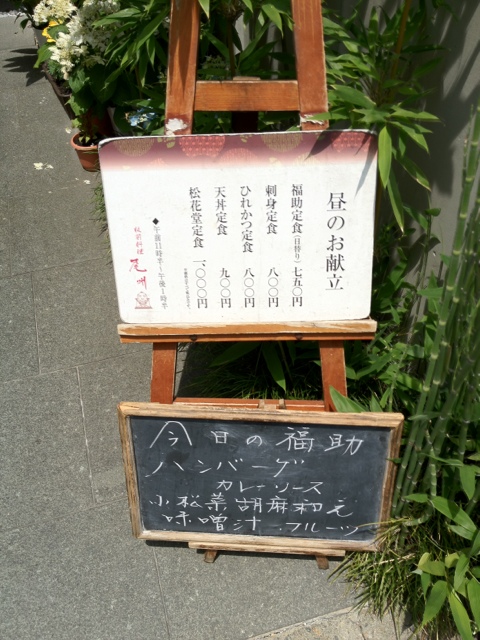 昼のお献立
福助定食(日替り)七五〇円
刺身定食 八〇〇円
ひれかつ定食 八〇〇円
天丼定食 九〇〇円
松花堂定食 一、〇〇〇円
◆午前11時半〜午後1時半
尾州
今日の福助
ハンバーグ
カレーソース
小松菜胡麻和え
味噌汁・フルーツ